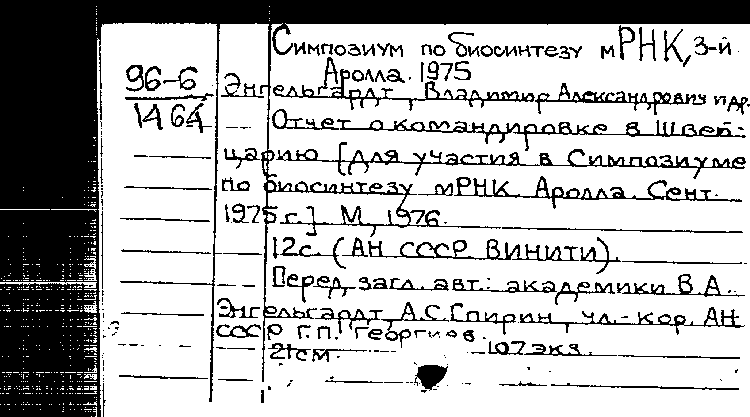 Симпозиум по биосинтезу мРНК, 3-й.
Аролла. 1975
96-6
1464
Энгельгардт, Владимир Александрович и др.
Отчет о командировке в Швей-
царию [для участия в Симпозиуме
по биосинтезу мРНК. Аролла. Сент.
1975 г.]. М., 1976.
12с. (АН СССР. ВИНИТИ).
Перед загл. авт.: академики В.А.
Энгельгардт, А.С.Спирин, чл.-кор. АН
СССР Г.П. Георгиев.
21см. 107 экз.